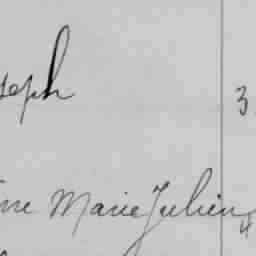 seph 3
rre Marie Julien 4